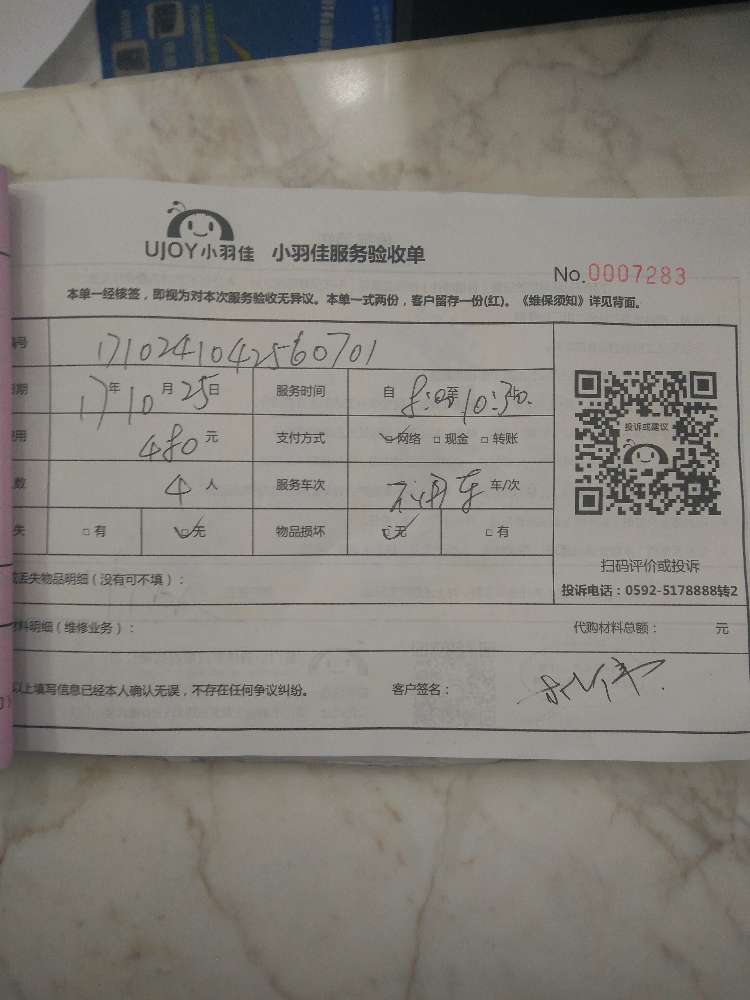 UJOY小羽佳 小羽佳服务验收单
No.0007283
本单一经核签，即视为对本次服务验收无异议。本单一式两份，客户留存一份(红)。《维保须知》详见背面。
编号 1710241042560701
日期 17年10月25日 服务时间 自 8:00至10:30
费用 480元 支付方式 ☑网络 □现金 □转账
人数 4人 服务车次 不用车 车/次
失 □有 ☑无 物品损坏 ☑无 □有
投诉或建议
扫码评价或投诉
投诉电话：0592-5178888转2
或丢失物品明细（没有可不填）：
材料明细（维修业务）： 代购材料总额： 元
以上填写信息已经本人确认无误，不存在任何争议纠纷。 客户签名：